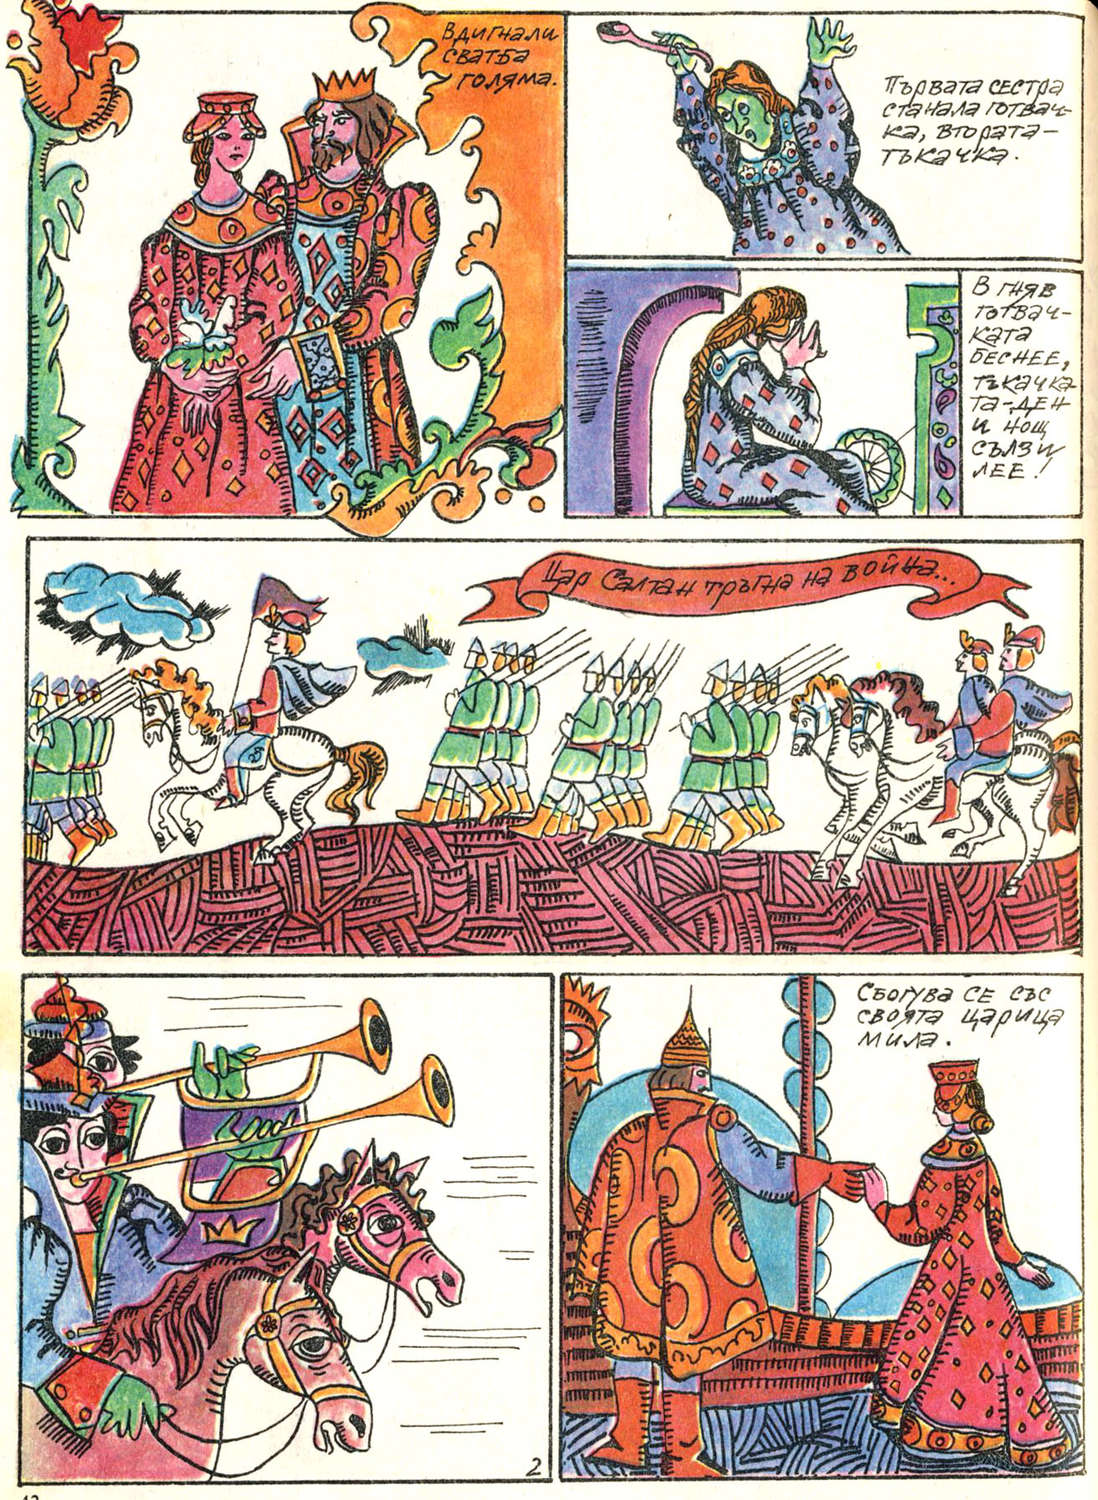 Вдигнали
сватба
голяма.
Първата сестра
станала готвач-
ка, втората-
тъкачка.
В гняв
готвач-
ката
беснее,
тъкачка
та-ден
и нощ
сълзи
лее!
Цар Салтан тръгна на война...
2
Сбогува се със
своята царица
мила.